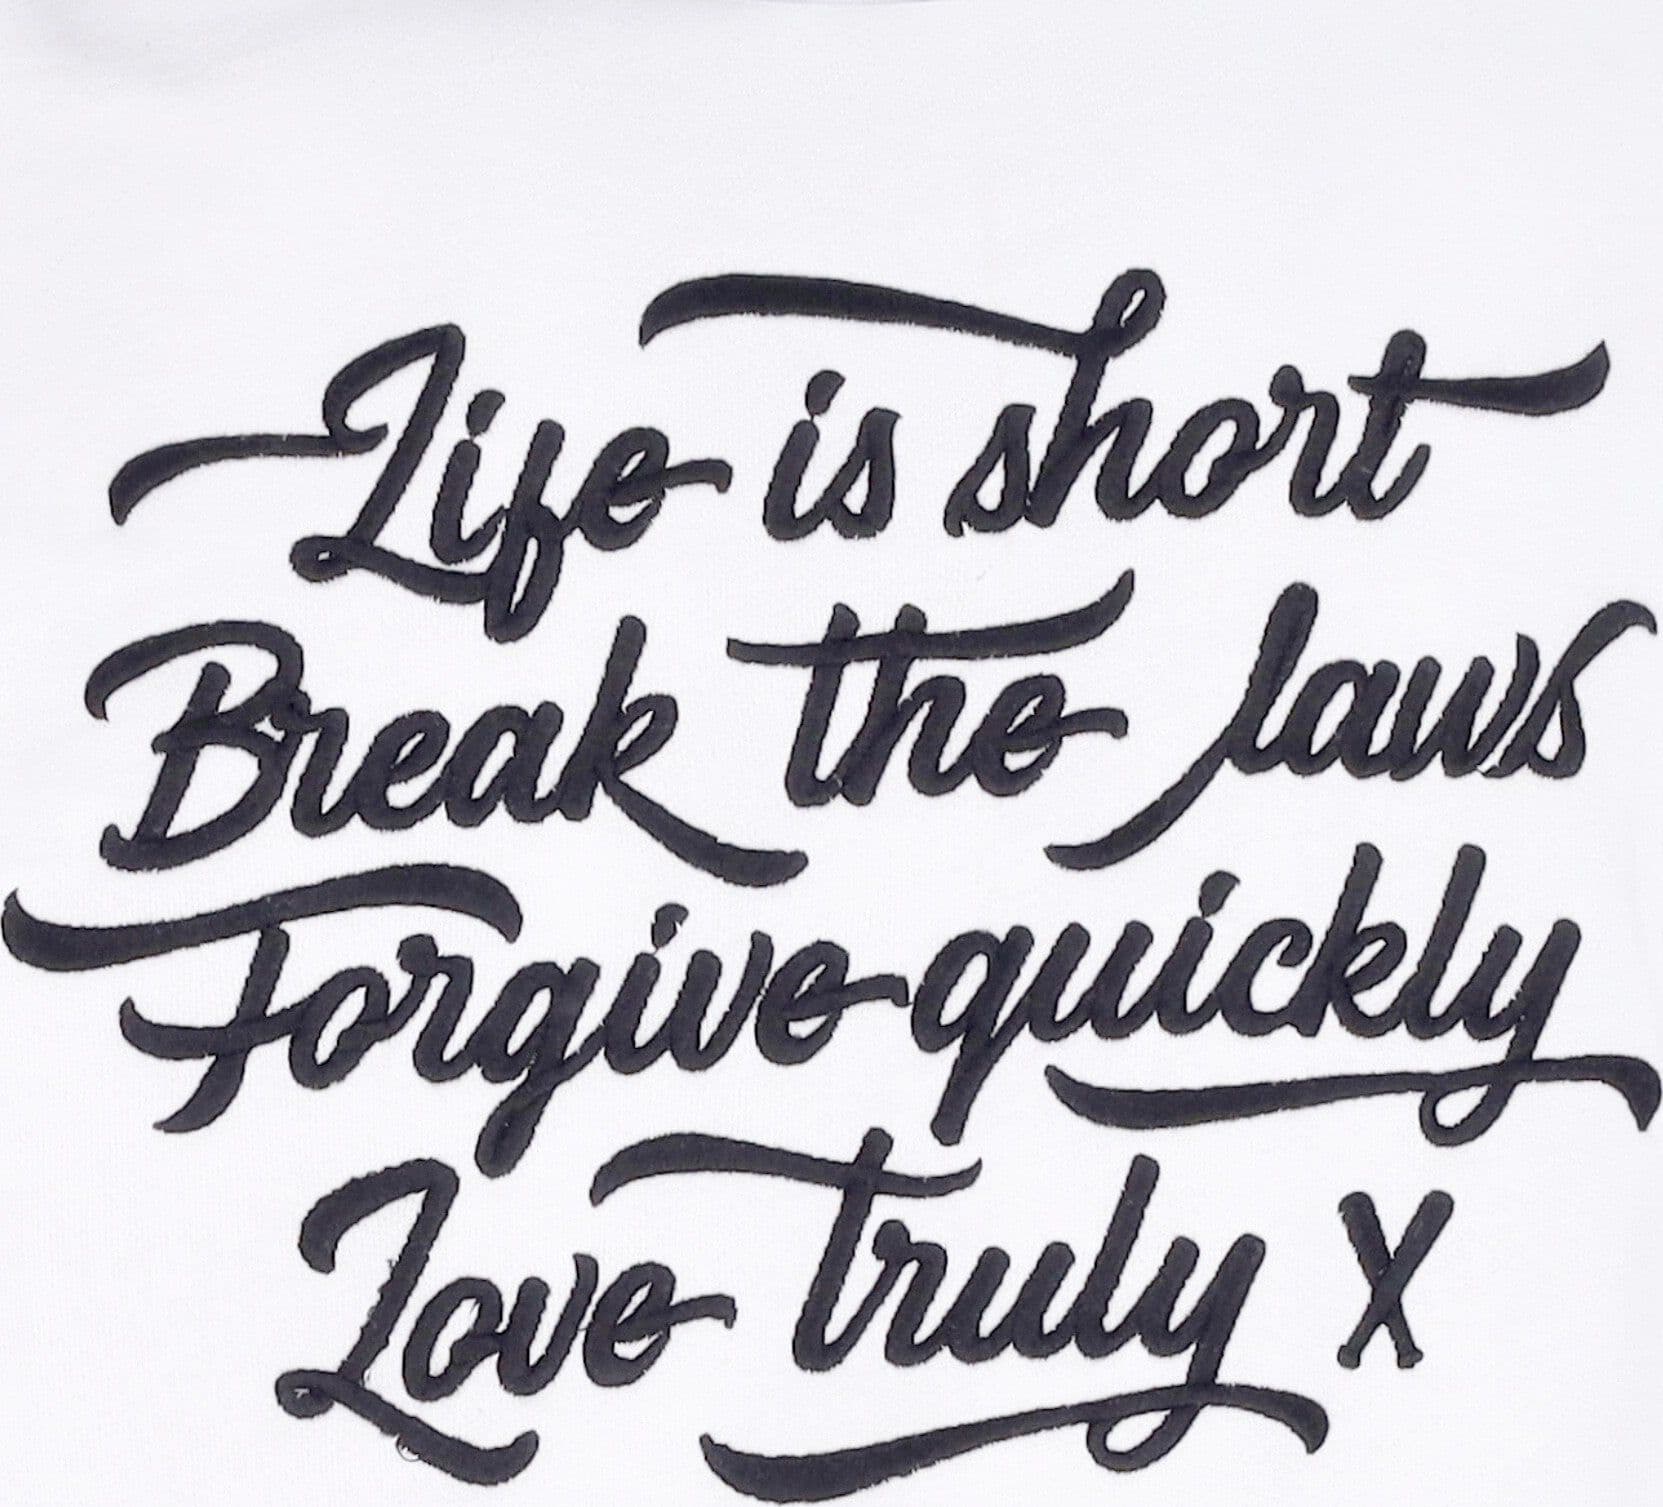 Life is short
Break the laws
Forgive quickly
Love truly X